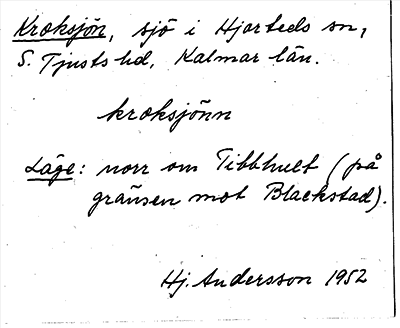 Kroksjön, sjö i Hjorteds sn,
S. Tjusts hd, Kalmar län.
kroksjönn
Läge: norr om Tibbhult (på
gränsen mot Blackstad).
Hj. Andersson 1952